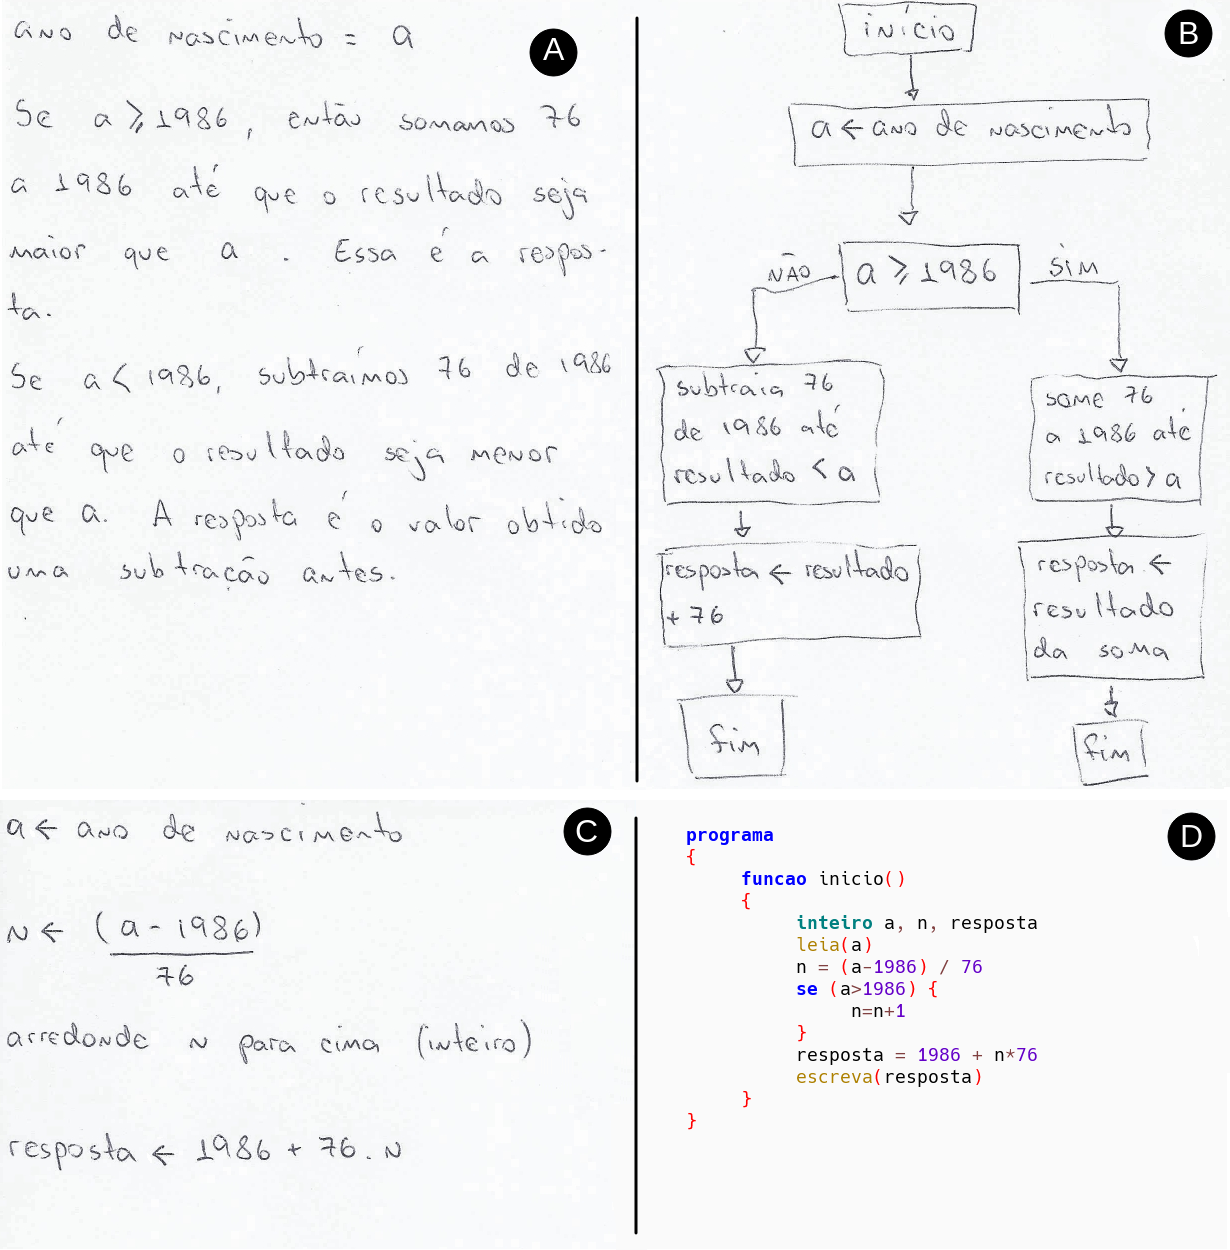 ano de nascimento = a
A
Se a ⩾ 1986, então somamos 76
a 1986 até que o resultado seja
maior que a . Essa é a respos-
ta.
Se a < 1986, subtraímos 76 de 1986
até que o resultado seja menor
que a. A resposta é o valor obtido
uma subtração antes.
B
início
a ← ano de nascimento
a ⩾ 1986
NÃO
SIM
subtraia 76
de 1986 até
resultado < a
resposta ← resultado
+ 76
fim
some 76
a 1986 até
resultado > a
resposta ←
resultado
da soma
fim
C
a ← ano de nascimento
N ← (a - 1986)
76
arredonde N para cima (inteiro)
resposta ← 1986 + 76 . N
D
programa
{
funcao inicio()
{
inteiro a, n, resposta
leia(a)
n = (a-1986) / 76
se (a>1986) {
n=n+1
}
resposta = 1986 + n*76
escreva(resposta)
}
}